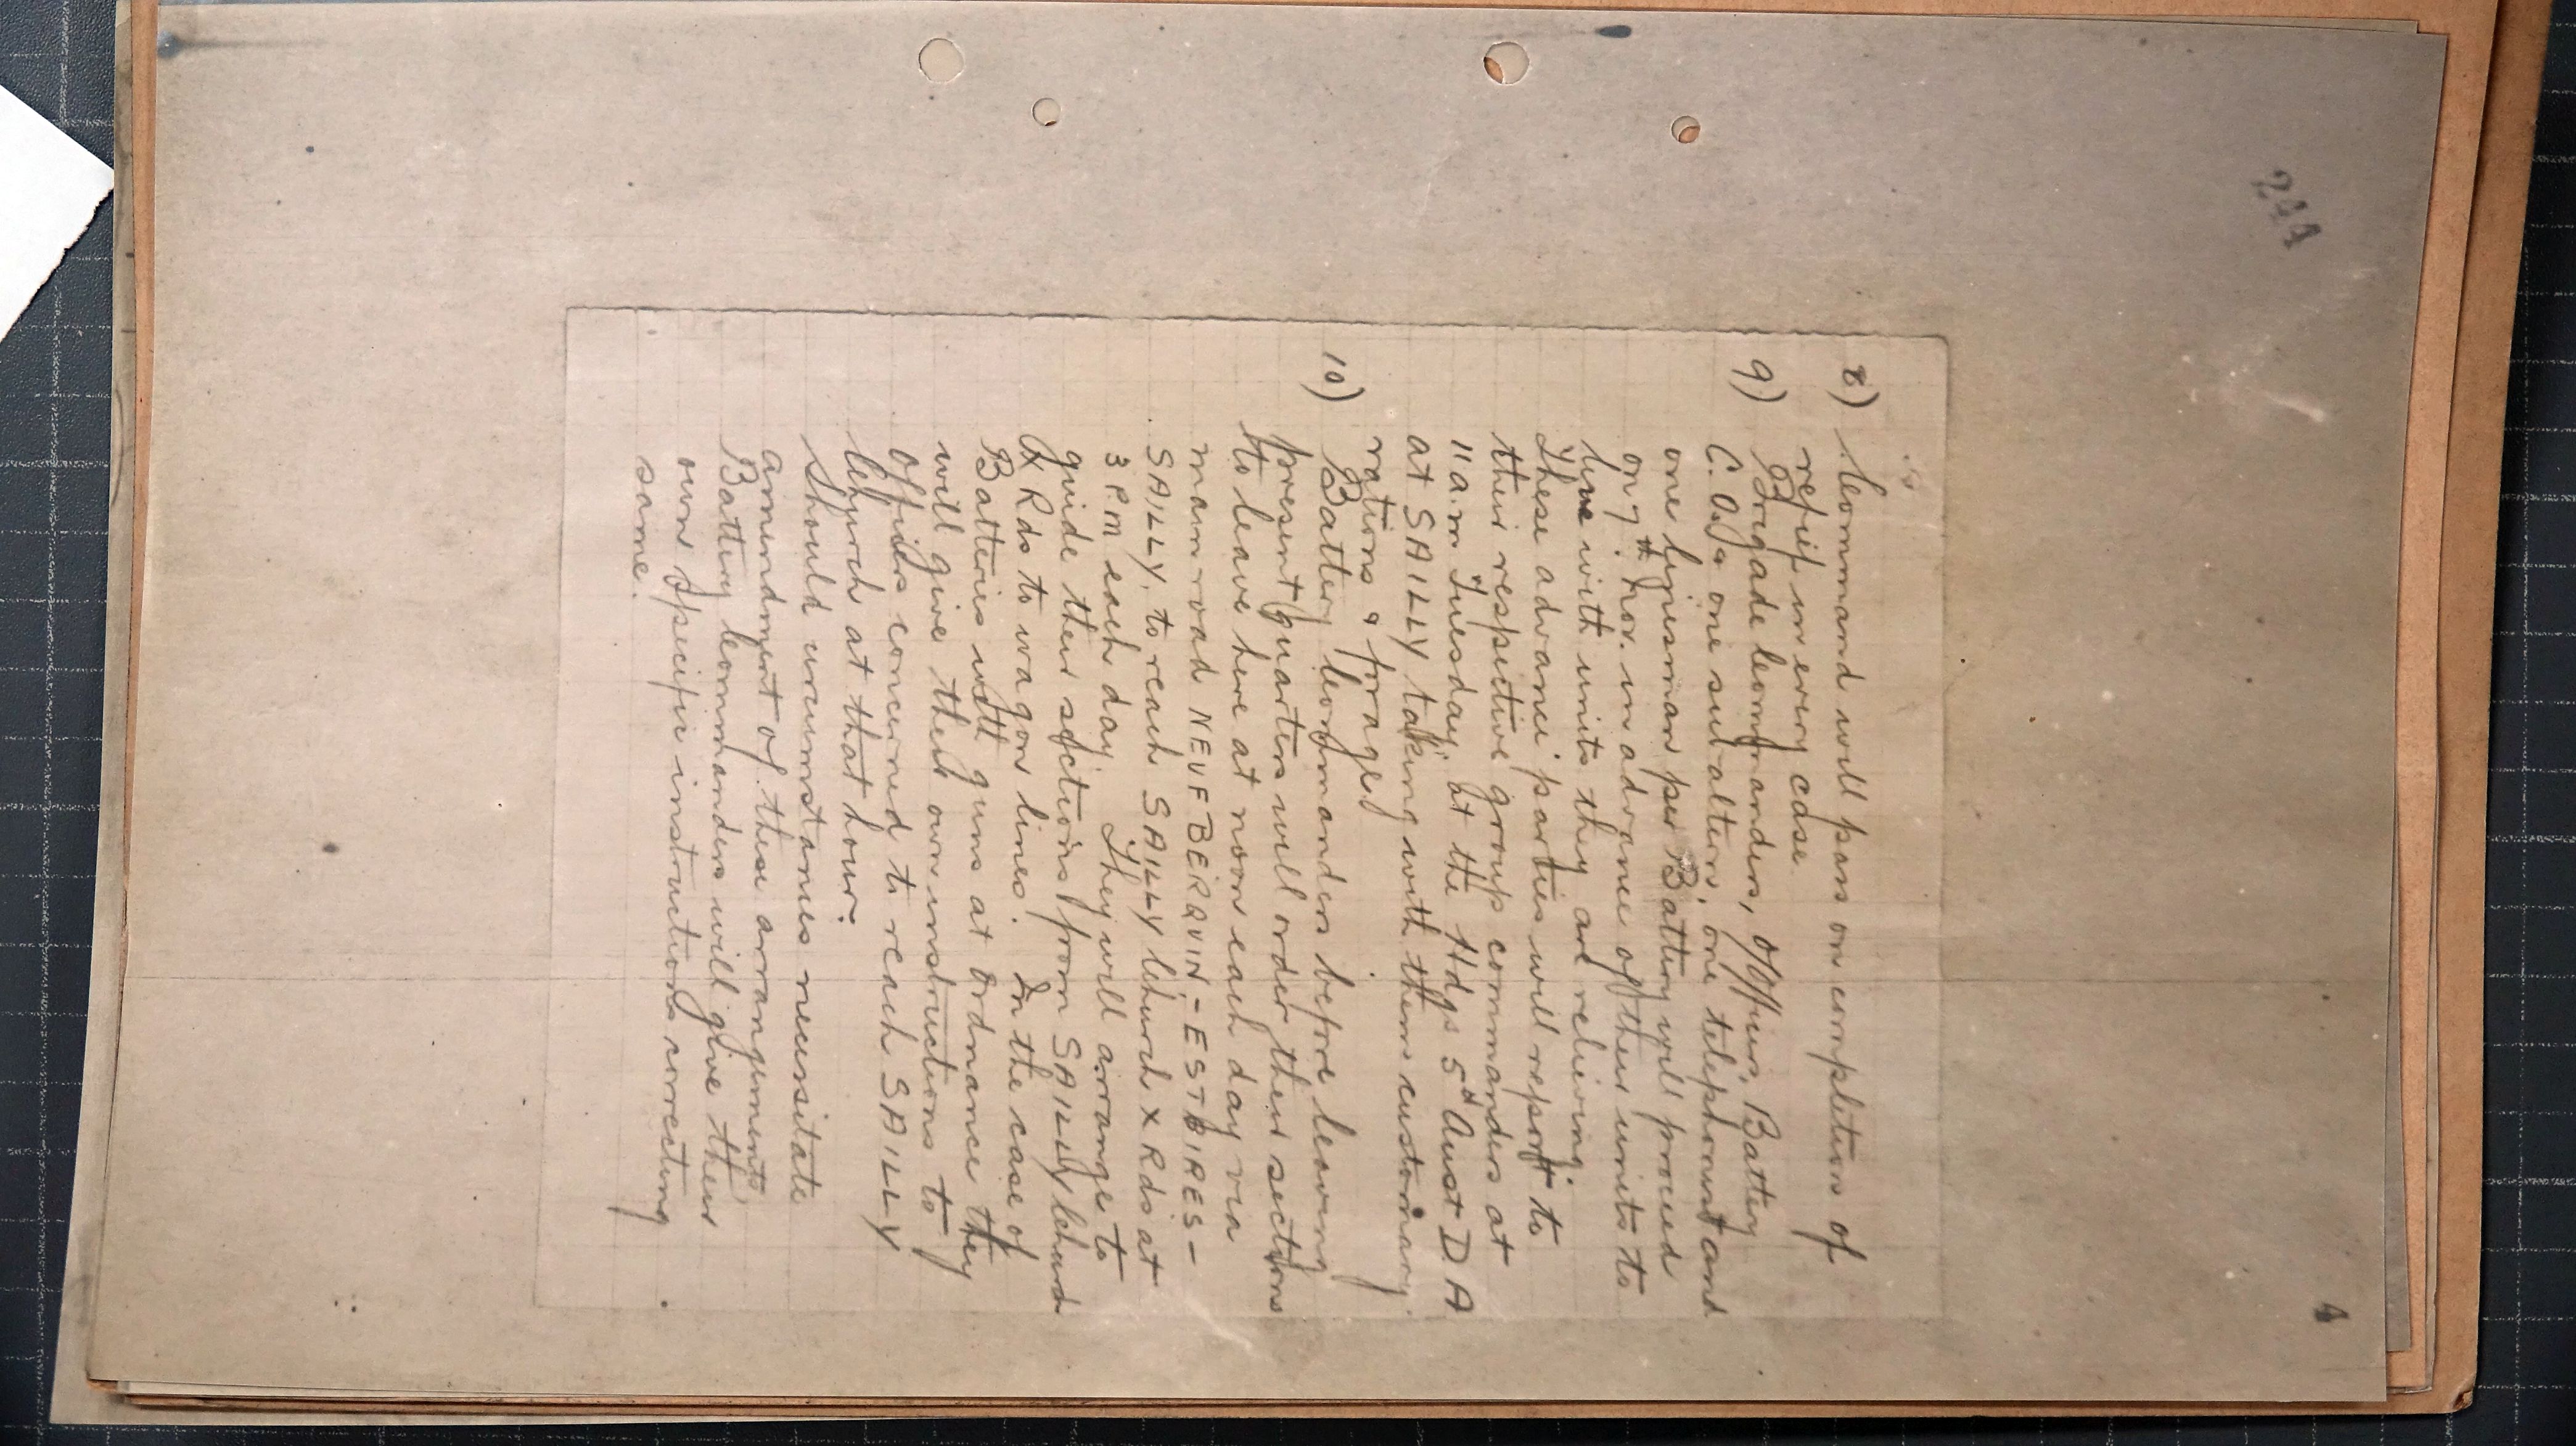 244
4
8) Command will pass on completion of
relief in every case.
9) Brigade Commanders, Officers, Battery
C.O.s & one subaltern, one telephonist and
one linesman per Battery will proceed
on 7th Nov. in advance of their units to
line with units they are relieving.
These advance parties will report to
their respective group commanders at
11 a.m Tuesday at the Hdqs 5th Aust D A
at SAILLY taking with them customary
rations & forage
10) Battery Commanders before leaving
present quarters will order their sections
to leave here at noon each day via
main road NEUF BERQUIN - ESTAIRES -
SAILLY, to reach SAILLY Church X Rds at
3 P.M each day. They will arrange to
guide their sections from SAILLY Church
X Rds to wagon lines. In the case of
Batteries with guns at Ordnance they
will give their own instructions to
Officers concerned to reach SAILLY
Church at that hour.
Should circumstances necessitate
amendment of these arrangements
Battery Commanders will give their
own specific instructions correcting
same.